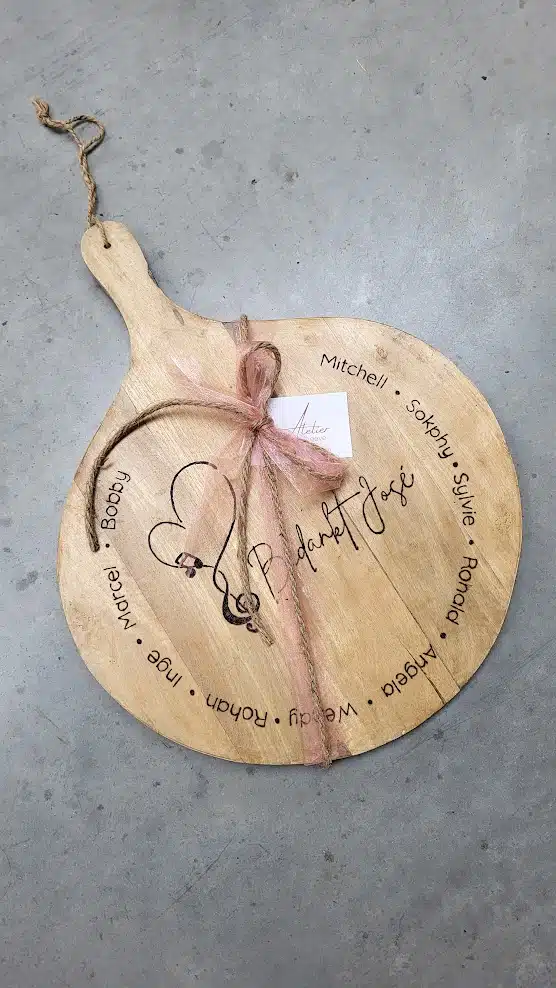 Mitchell • Sokphy • Sylvie • Ronald • Angela • Wendy • Rohan • Inge • Marcel • Bobby
Bedankt José
Atelier